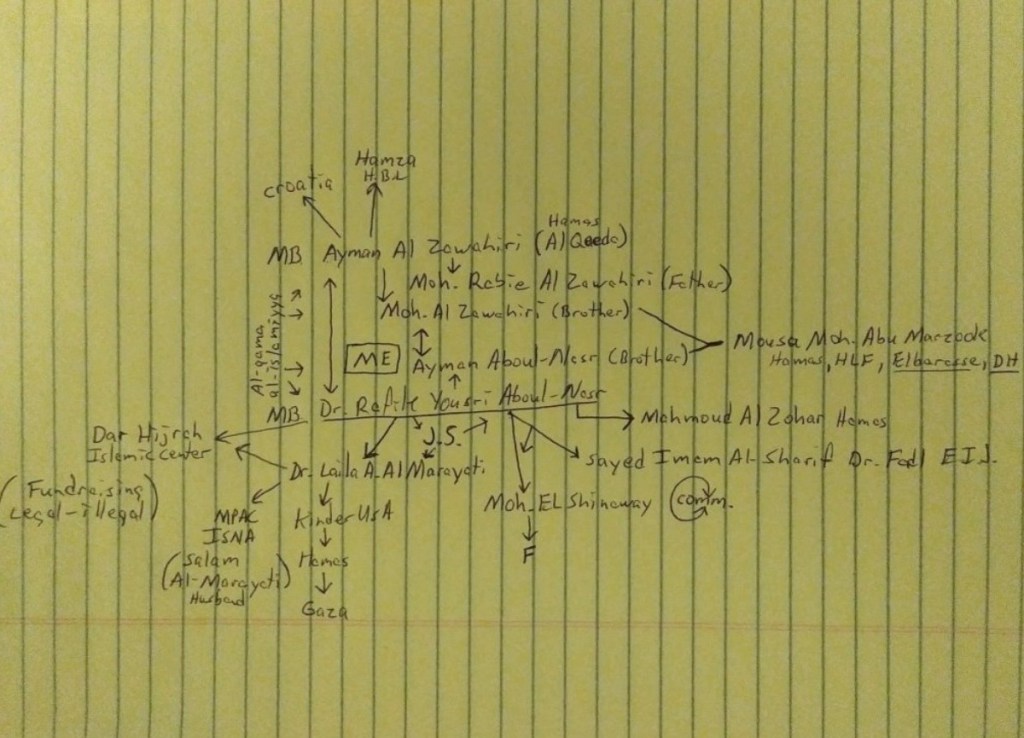 Hamza
H.B.L
croatia
Hamas
MB Ayman Al Zawahiri (Al Qaeda)
Moh. Rabie Al Zawahiri (Father)
Moh. Al Zawahiri (Brother)
Al-gama
al-islamiyya
Mousa Moh. Abu Marzook
Hamas, HLF, Elbarasse, DH
ME Ayman Aboul-Nasr (Brother)
MB Dr. Rafik Yousri Aboul-Nasr
Mahmoud Al Zahar Hamas
J.S.
Dar Hijrah
Islamic center
Sayed Imam Al-Sharif Dr. Fadl EIJ.
Dr. Laila A. Al Marayati
(Fundraising
Legal-illegal)
Moh. EL Shinaway comm.
MPAC
ISNA
KinderUSA
F
(Salam
Al-Marayati)
Husband
Hamas
Gaza